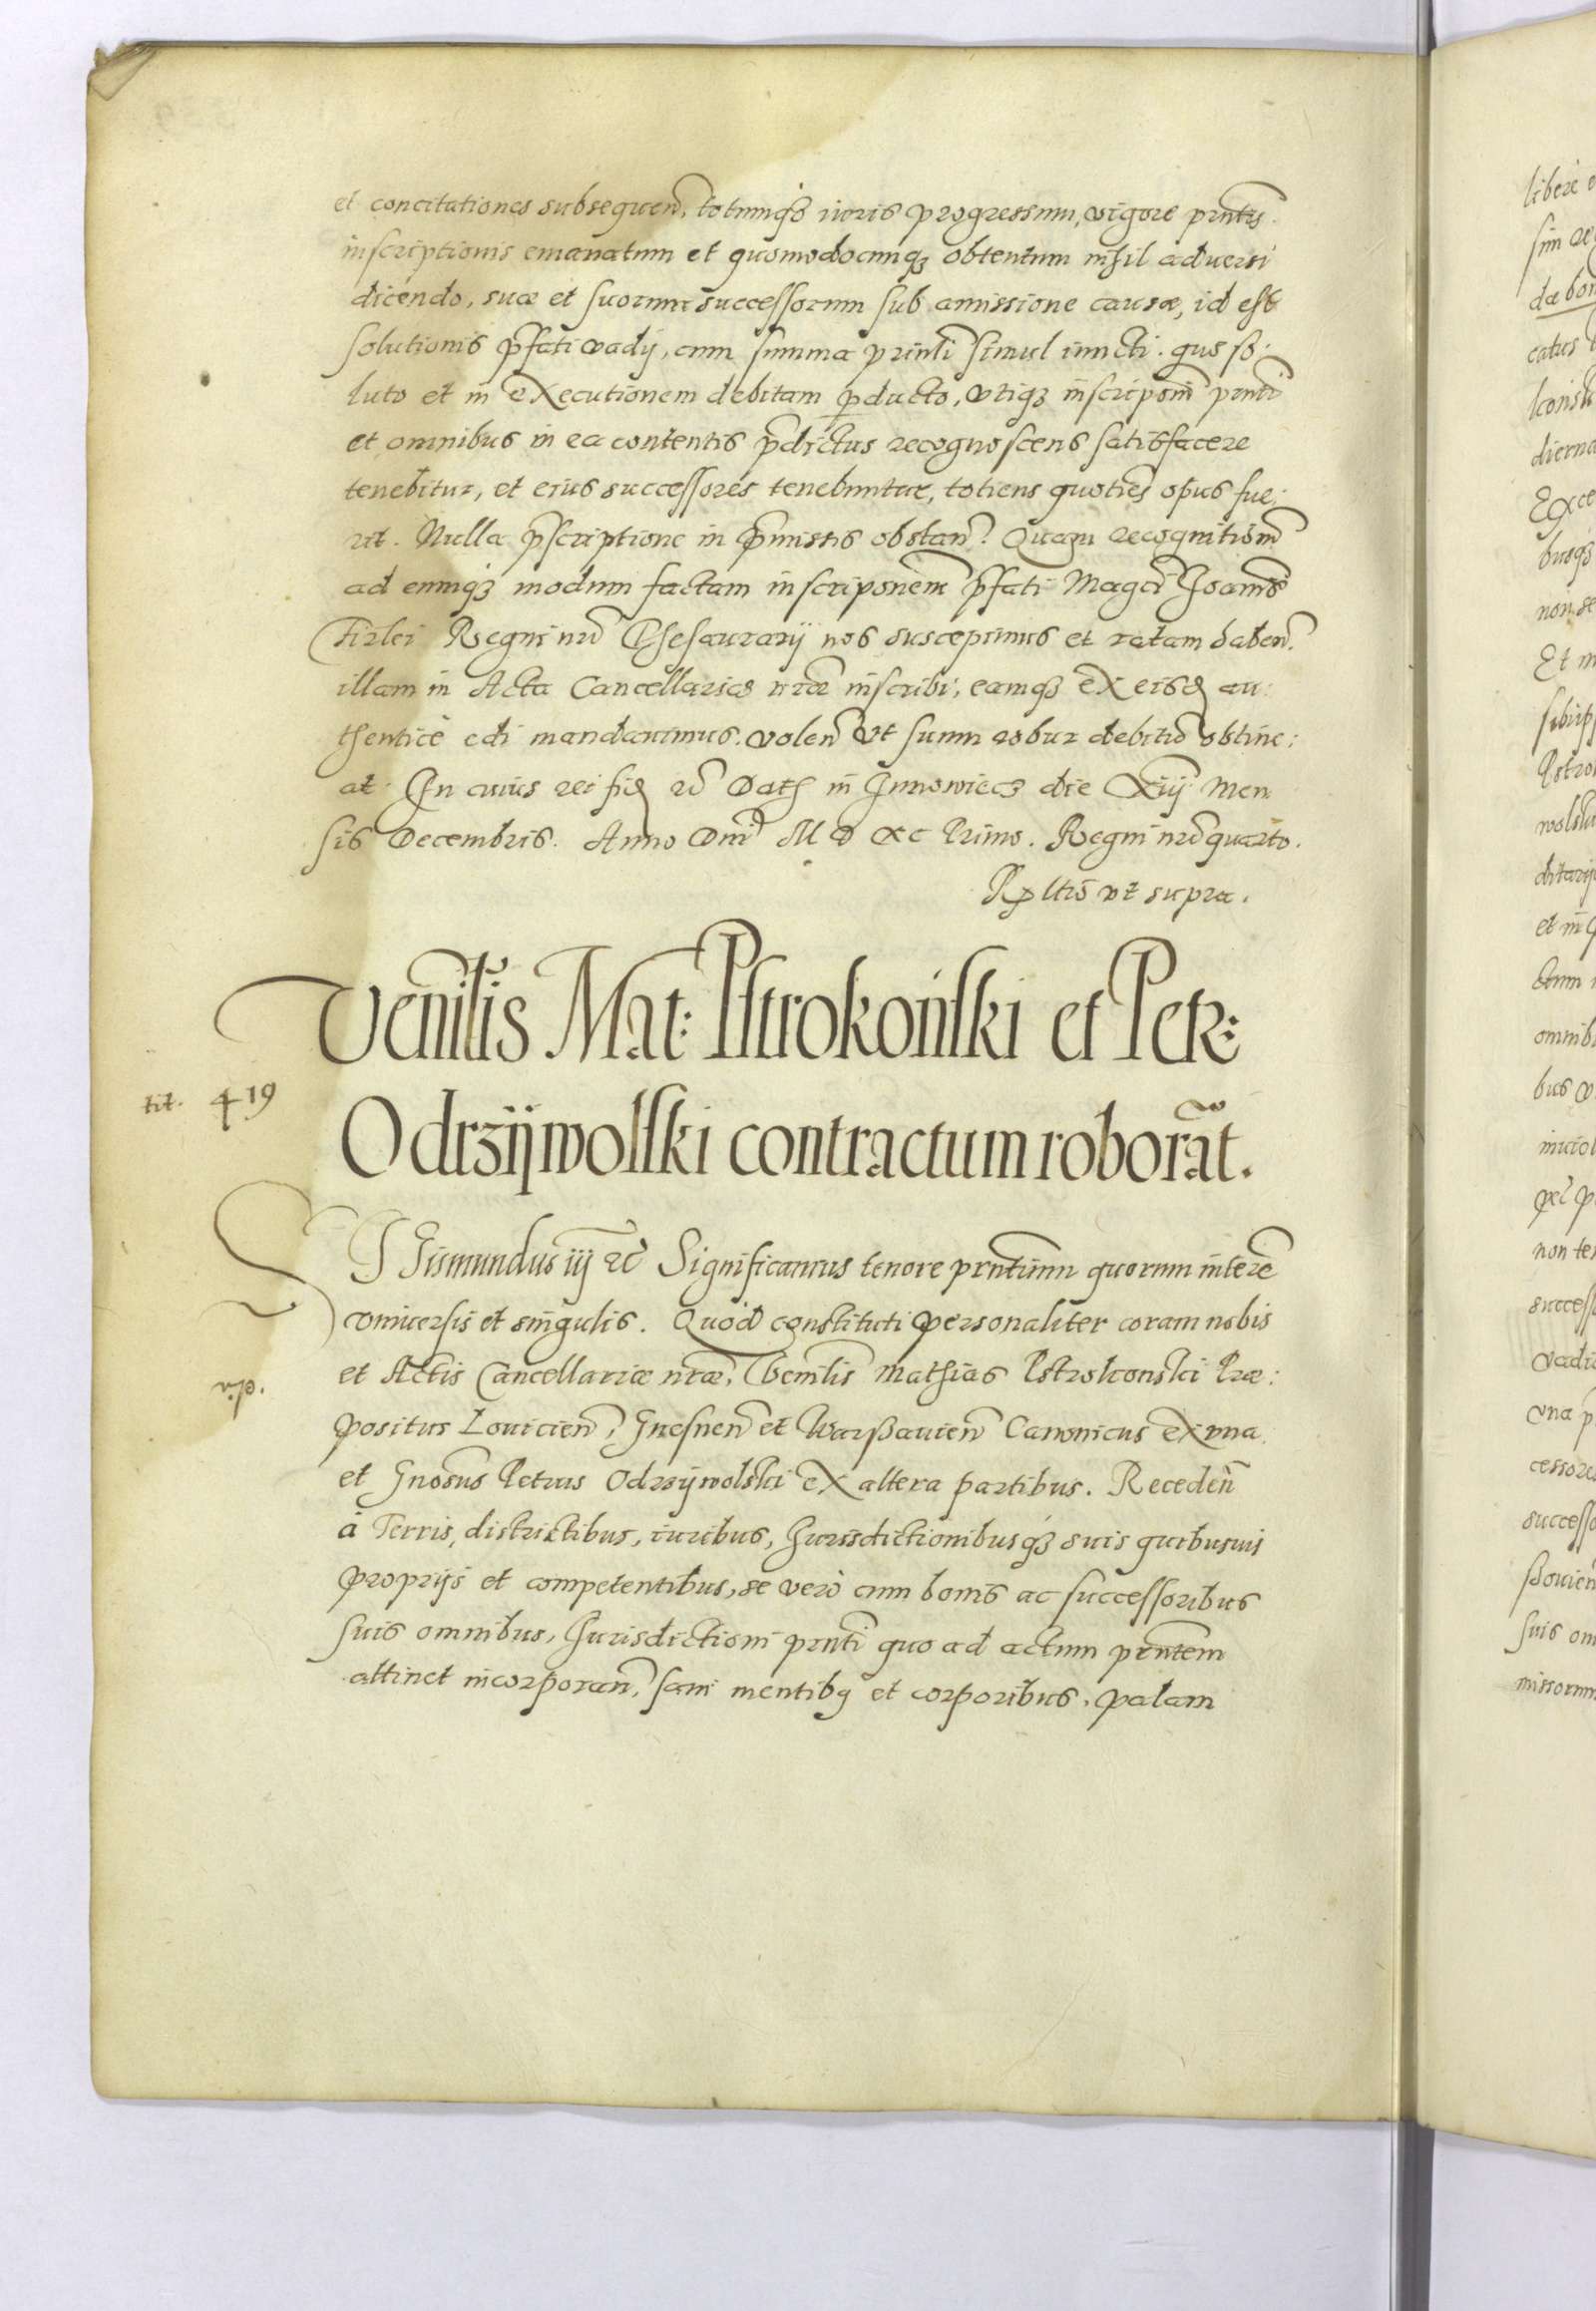 et concitationes subsequen̄, totumq₃ iuris progressum, vigore pr̄ntis
inscriptionis emanatum et quomodocunq₃ obtentum nihil aduersi
dicendo, suæ et suorum successorum sub amissione causæ, id est
solutionis p̄fati vadij, cum summa prinl̄i simul iuncti. quo so:
luto et in executionem debitam ꝑducto, vtiq₃ inscripōni pn̄ti
et omnibus in ea contentis p̄dictus recognoscens satisfacere
tenebitur, et eius successores tenebuntur, totiens quotiēs opus fue:
rit. Nulla p̄scriptione in p̄missis obstan̄. Quaqu recognitiōm
ad eumq₃ modum factam inscriponēm p̄fati Magci Joannis
Firlei Regni nr̄i Thesaurarij nos suscepimus et ratam haben̄.
illam in Acta Cancellariæ nr̄æ inscribi, eamq₃ ex eisd̄ au:
thenticè edi mandauimus. volen̄ vt suum robur debitū obtine:
at. In cuius rei fid̄ &c̄ Dat̄ in Junowiecz die Xiij Men
sis Decembris. Anno Dn̄i M D XC Primo. Regni nr̄i quarto.
Rꝑltiō vt supra.
Venīlis Mat: Pstrokoński et Petr:
Odrzijwolski contractum roborāt.
tit. 419
SIGismundus iij &c̄ Significamus tenore pr̄ntium quorum interē
vniuersis et singulis. Quòd constituti personaliter coram nobis
et Actis Cancellariæ nr̄æ, Venīlis Mathias Pstrokonski Præ:
positus Louicien̄, Gnesnen̄ et Warßauien̄ Canonicus ex vna
et Gnōsus Petrus Odrzijwolski ex altera partibus. Receden̄
à Terris, districtibus, iuribus, Jurisdictionibusq₃ suis quibusuis
proprijs et competentibus, se verò cum bonis ac successoribus
suis omnibus, Jurisdictioni pr̄nti quo ad actum pr̄ntem
attinet incorporan̄, sani mentibꝰ et corporibus, palam